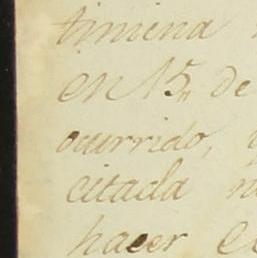 timiena
en 15, de
ocurrido,
citada
hacer